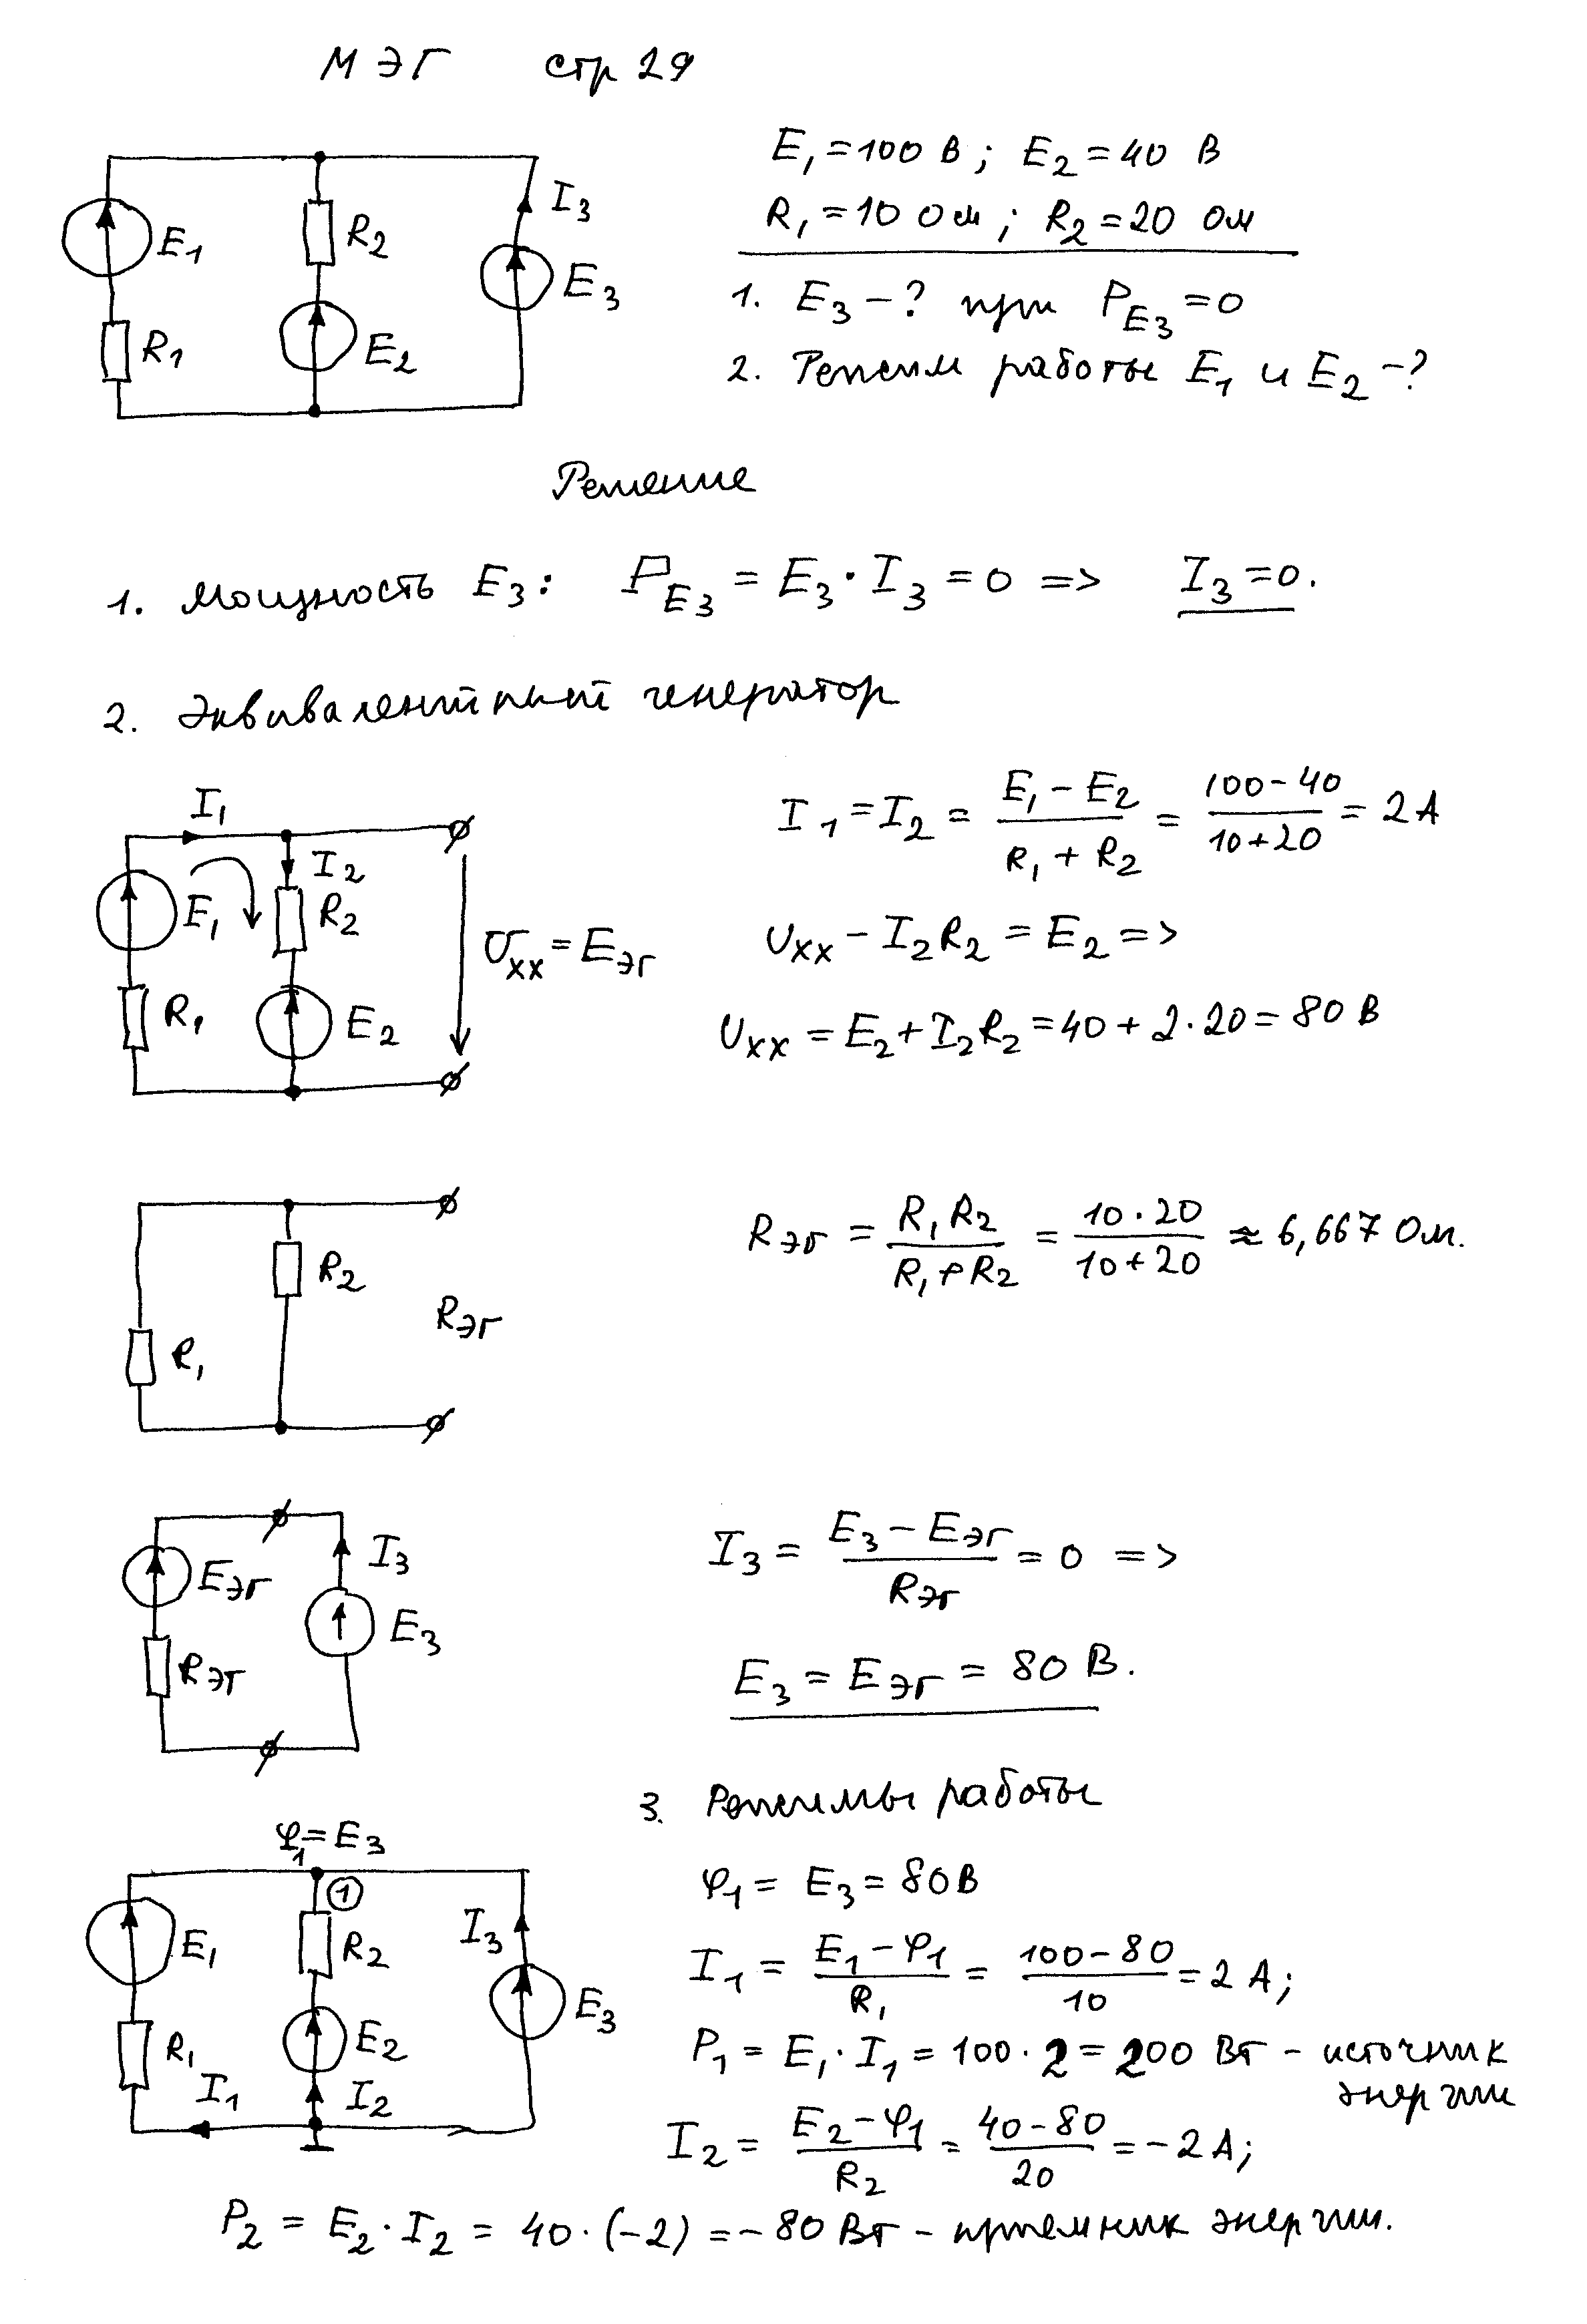 МЭГ стр 29
E₁ = 100 В; E₂ = 40 В
R₁ = 10 Ом; R₂ = 20 Ом
1. E₃ – ? при P_E₃ = 0
2. Режим работы E₁ и E₂ – ?
E₁
R₁
R₂
E₂
I₃
E₃
Решение
1. Мощность E₃: P_E₃ = E₃ · I₃ = 0 => I₃ = 0.
2. Эквивалентный генератор
I₁
I₂
E₁
R₂
R₁
E₂
Uхх = Eэг
I₁ = I₂ = (E₁ – E₂)/(R₁ + R₂) = (100 – 40)/(10 + 20) = 2 А
Uхх – I₂R₂ = E₂ =>
Uхх = E₂ + I₂R₂ = 40 + 2 · 20 = 80 В
R₂
R₁
Rэг
Rэг = (R₁R₂)/(R₁ + R₂) = (10 · 20)/(10 + 20) ≈ 6,667 Ом.
Eэг
Rэг
I₃
E₃
I₃ = (E₃ – Eэг)/Rэг = 0 =>
E₃ = Eэг = 80 В.
3. Режимы работы
φ₁ = E₃
1
E₁
R₁
I₁
R₂
E₂
I₂
I₃
E₃
φ₁ = E₃ = 80 В
I₁ = (E₁ – φ₁)/R₁ = (100 – 80)/10 = 2 А;
P₁ = E₁ · I₁ = 100 · 2 = 200 Вт – источник
энергии
I₂ = (E₂ – φ₁)/R₂ = (40 – 80)/20 = – 2 А;
P₂ = E₂ · I₂ = 40 · (–2) = – 80 Вт – приемник энергии.